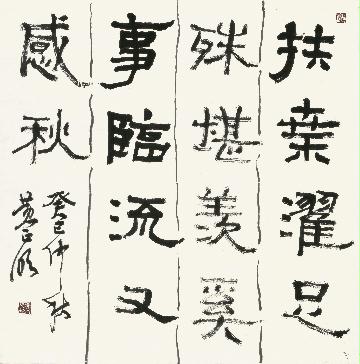 扶桑濯足
殊堪羡奚
事临流又
感秋
癸巳仲秋